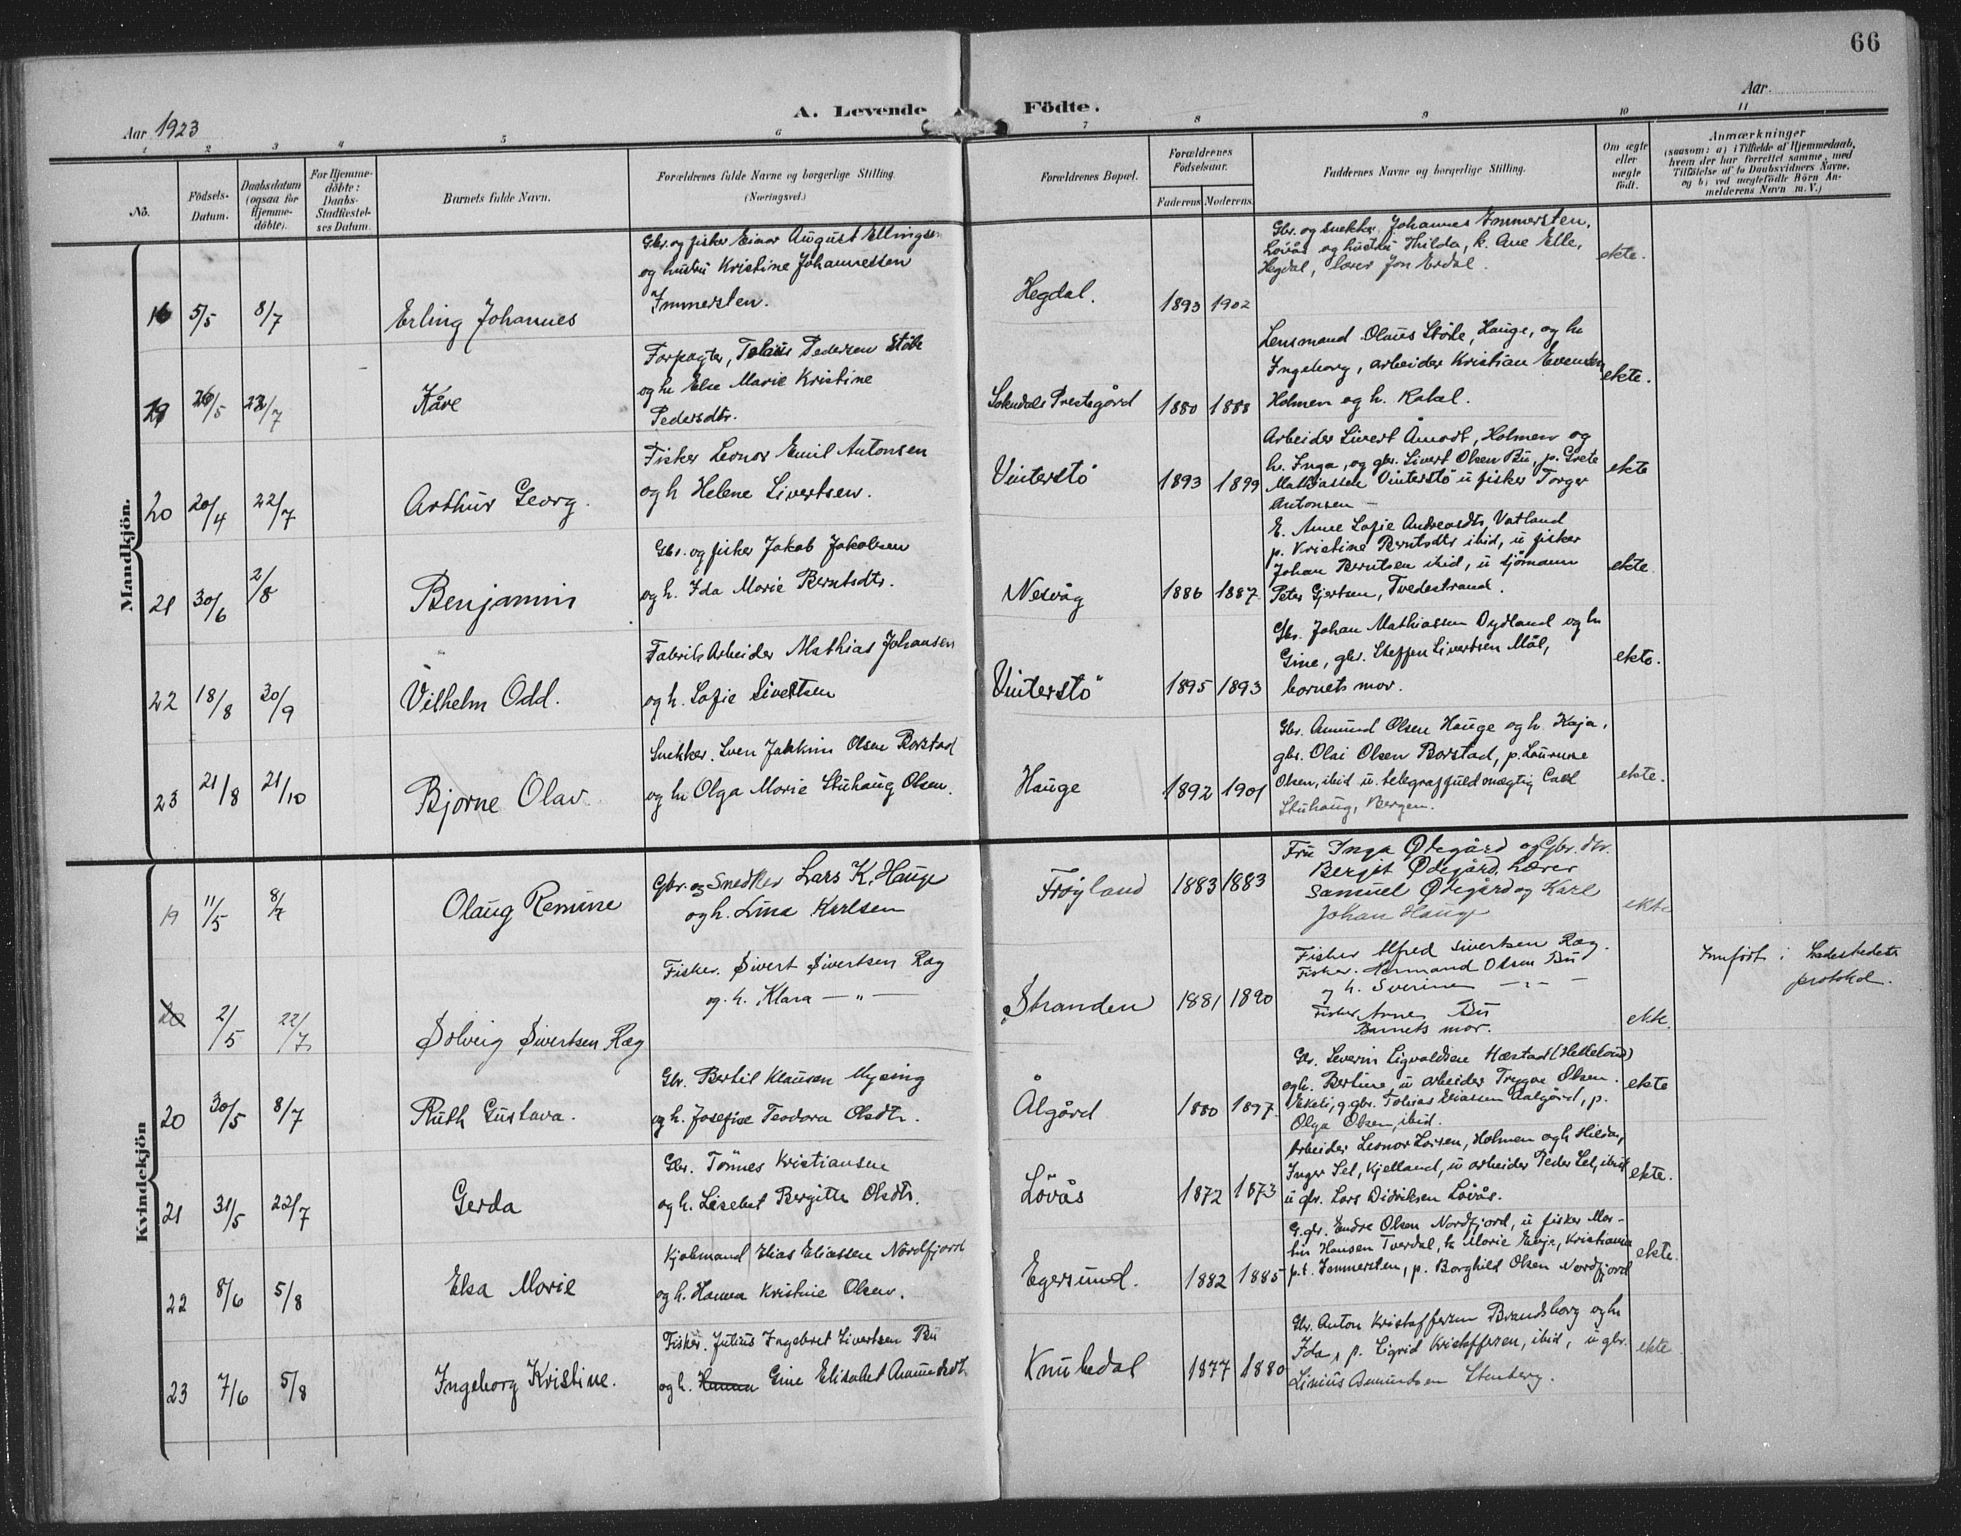 66
A. Levende Födte.
Aar 1923
Aar
1 2 3 4 5 6 7 8 9 10 11
Nö.
Födsels-Datum.
Daabsdatum (ogsaa for Hjemme-döbte).
For Hjemme-döbte: Daabs-Stadfæstel-ses Datum.
Barnets fulde Navn.
Forældrenes fulde Navne og borgerlige Stilling. (Næringsvei.)
Forældrenes Bopæl.
Forældrenes Födselsaar.
Faderens Moderens
Faddernes Navne og borgerlige Stilling.
Om ægte eller uægte födt.
Anmærkninger
(saasom: a) i Tilfælde af Hjemmedaab, hvem der har forrettet samme, med Tilföielse af to Daabsvidners Navne, og b) ved uægtefödte Börn An-melderens Navn m. V.)
Mandkjön.
16 5/5 8/7 Erling Johannes
Gbr. og fisker Einar August Ellingsen
og hustru Kristine Johannessen
Immersten.
Hegdal. 1893 1902
Gbr. og snekker Johannes Immersten,
Løvås og hustru Hilda, k. Ane Elle,
Hegdal, lærer Jon Erdal.
ekte.
19 26/5 22/7 Kåre
Forpagter, Tobias Pedersen Støle
og h. Else Marie Kristine
Pedersdtr.
Sokndals Prestegård 1880 1888
Lensmand Olaus Støle, Hauge, og h.
Ingeborg, arbeider Kristian Evensen
Holmen og h. Rakel.
ekte.
20 20/4 22/7 Arthur Georg.
Fisker Leonor Emil Antonsen
og h Helene Sivertsen.
Vinterstø 1893 1899
Arbeider Sivert Åmodt, Holmen og
h. Inga, og gbr. Sivert Olsen Bu, p. Grete
Mathiassen Vinterstø u fisker Torger
Antonsen
ekte
21 30/6 2/8 Benjamin
Gbr. og fisker Jakob Jakobsen
og h. Ida Marie Berntsdtr.
Nesvåg 1886 1887
E. Anne Sofie Andreasdtr, Vatland
p. Kristine Berntsdtr ibid, u fisker
Johan Berntsen ibid, u sjømann
Peter Gjertsen, Tvedestrand.
ekte
22 18/8 30/9 Vilhelm Odd.
Fabrik Arbeider Mathias Johansen
og h. Sofie Sivertsen
Vinterstø 1895 1893
Gbr. Johan Mathiassen Dydland og h
Gine, gbr. Steffen Sivertsen Mål,
barnets mor.
ekte.
23 21/8 21/10 Bjarne Olav
Snekker. Sven Jakkim Olsen Barstad
og h Olga Marie Stuhaug Olsen.
Hauge 1892 1901
Gbr. Amund Olsen Hauge og h. Kaja,
gbr. Olai Olsen Barstad, p. Laurine
Olsen, ibid u. telegraffuldmægtig Carl
Stuhaug, Bergen.
ekte.
Kvindekjön
19 11/5 8/7 Olaug Remine
Gbr. og Snedker Lars K. Hauge
og h. Lina Karlsen
Frøyland 1883 1883
Fru Inga Ødegård og Gbr. dtr.
Bergit Ødegård, Lærer
Samuel Ødegård og Karl
Johan Hauge
ekte
20 2/5 22/7 Solveig Sivertsen Ræg
Fisker. Sivert Sivertsen Ræg
og. h. Klara — " —
Stranden 1881 1890
Fisker Alfred Sivertsen Ræg.
Fisker. Hermand Olsen Bu
og h. Sverine — " —
Fisker Arne Bu
Barnets mor.
ekte.
Innført i Ladestedets
protokol.
20 30/5 8/7 Ruth Gustava.
Gbr. Bertil Klausen Mysing
og h. Josefine Teodora Olsdtr.
Ålgård 1880 1897
Gbr. Severin Sigvaldsen Hæstad (Helleland)
og h. Bertine, u arbeider Trygve Olsen
Ekeli, g. gbr. Tobias Eliassen Aalgård, p.
Olga Olsen, ibid.
ekte
21 31/5 22/7 Gerda
Gbr. Tönnes Kristiansen
og h. Lisebet Bergitte Olsdtr.
Løvås 1872 1873
Arbeider Leonor Larsen, Holmen og h Hilda,
Inger Sel, Kjelland, u arbeider Peder Sel, ibid
u gbr. Lars Didriksen Løvås.
ekte.
22 8/6 5/8 Elsa Marie
Kjøbmand Elias Eliassen Nordfjord
og h. Hanna Kristine Olsen.
Egersund. 1882 1885
G. gbr. Endre Olsen Nordfjord, u fisker Mar-
tin Hansen Tverdal, k Marie Enge, Kristiania
p.t. Immersten, p. Borghild Olsen Nordfjord
ekte.
23 7/6 5/8 Ingeborg Kristine.
Fisker. Julius Ingebret Sivertsen Bu
og h. Hanna Gine Elisabet Aamundsdtr
Knubedal 1877 1880
Gbr. Anton Kristoffersen Brandsberg og h
Ida, p. Sigrid Kristoffersen, ibid, u gbr.
Sirius Amundsen Stenberg.
ekte